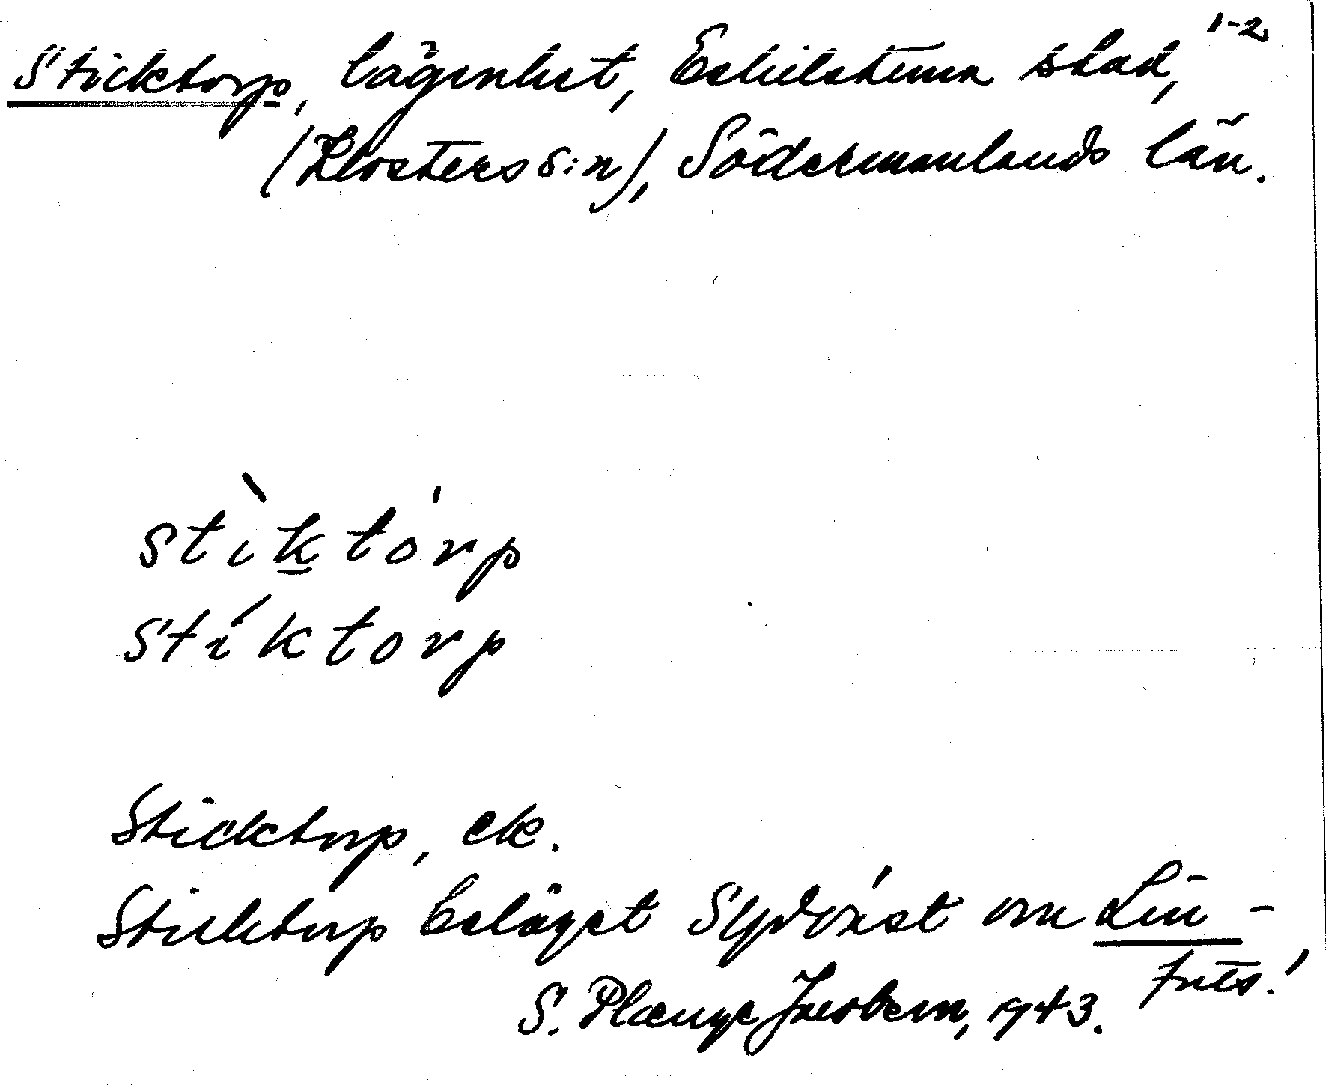 1-2
Sticktorp, lägenhet, Eskilstuna stad,
(Klosters s:n), Södermanlands län.
stìktórp
stíktorp
Sticktorp, ek.
Sticktorp beläget Sydväst om Lin-
S. Plænge Jacobson, 1943.